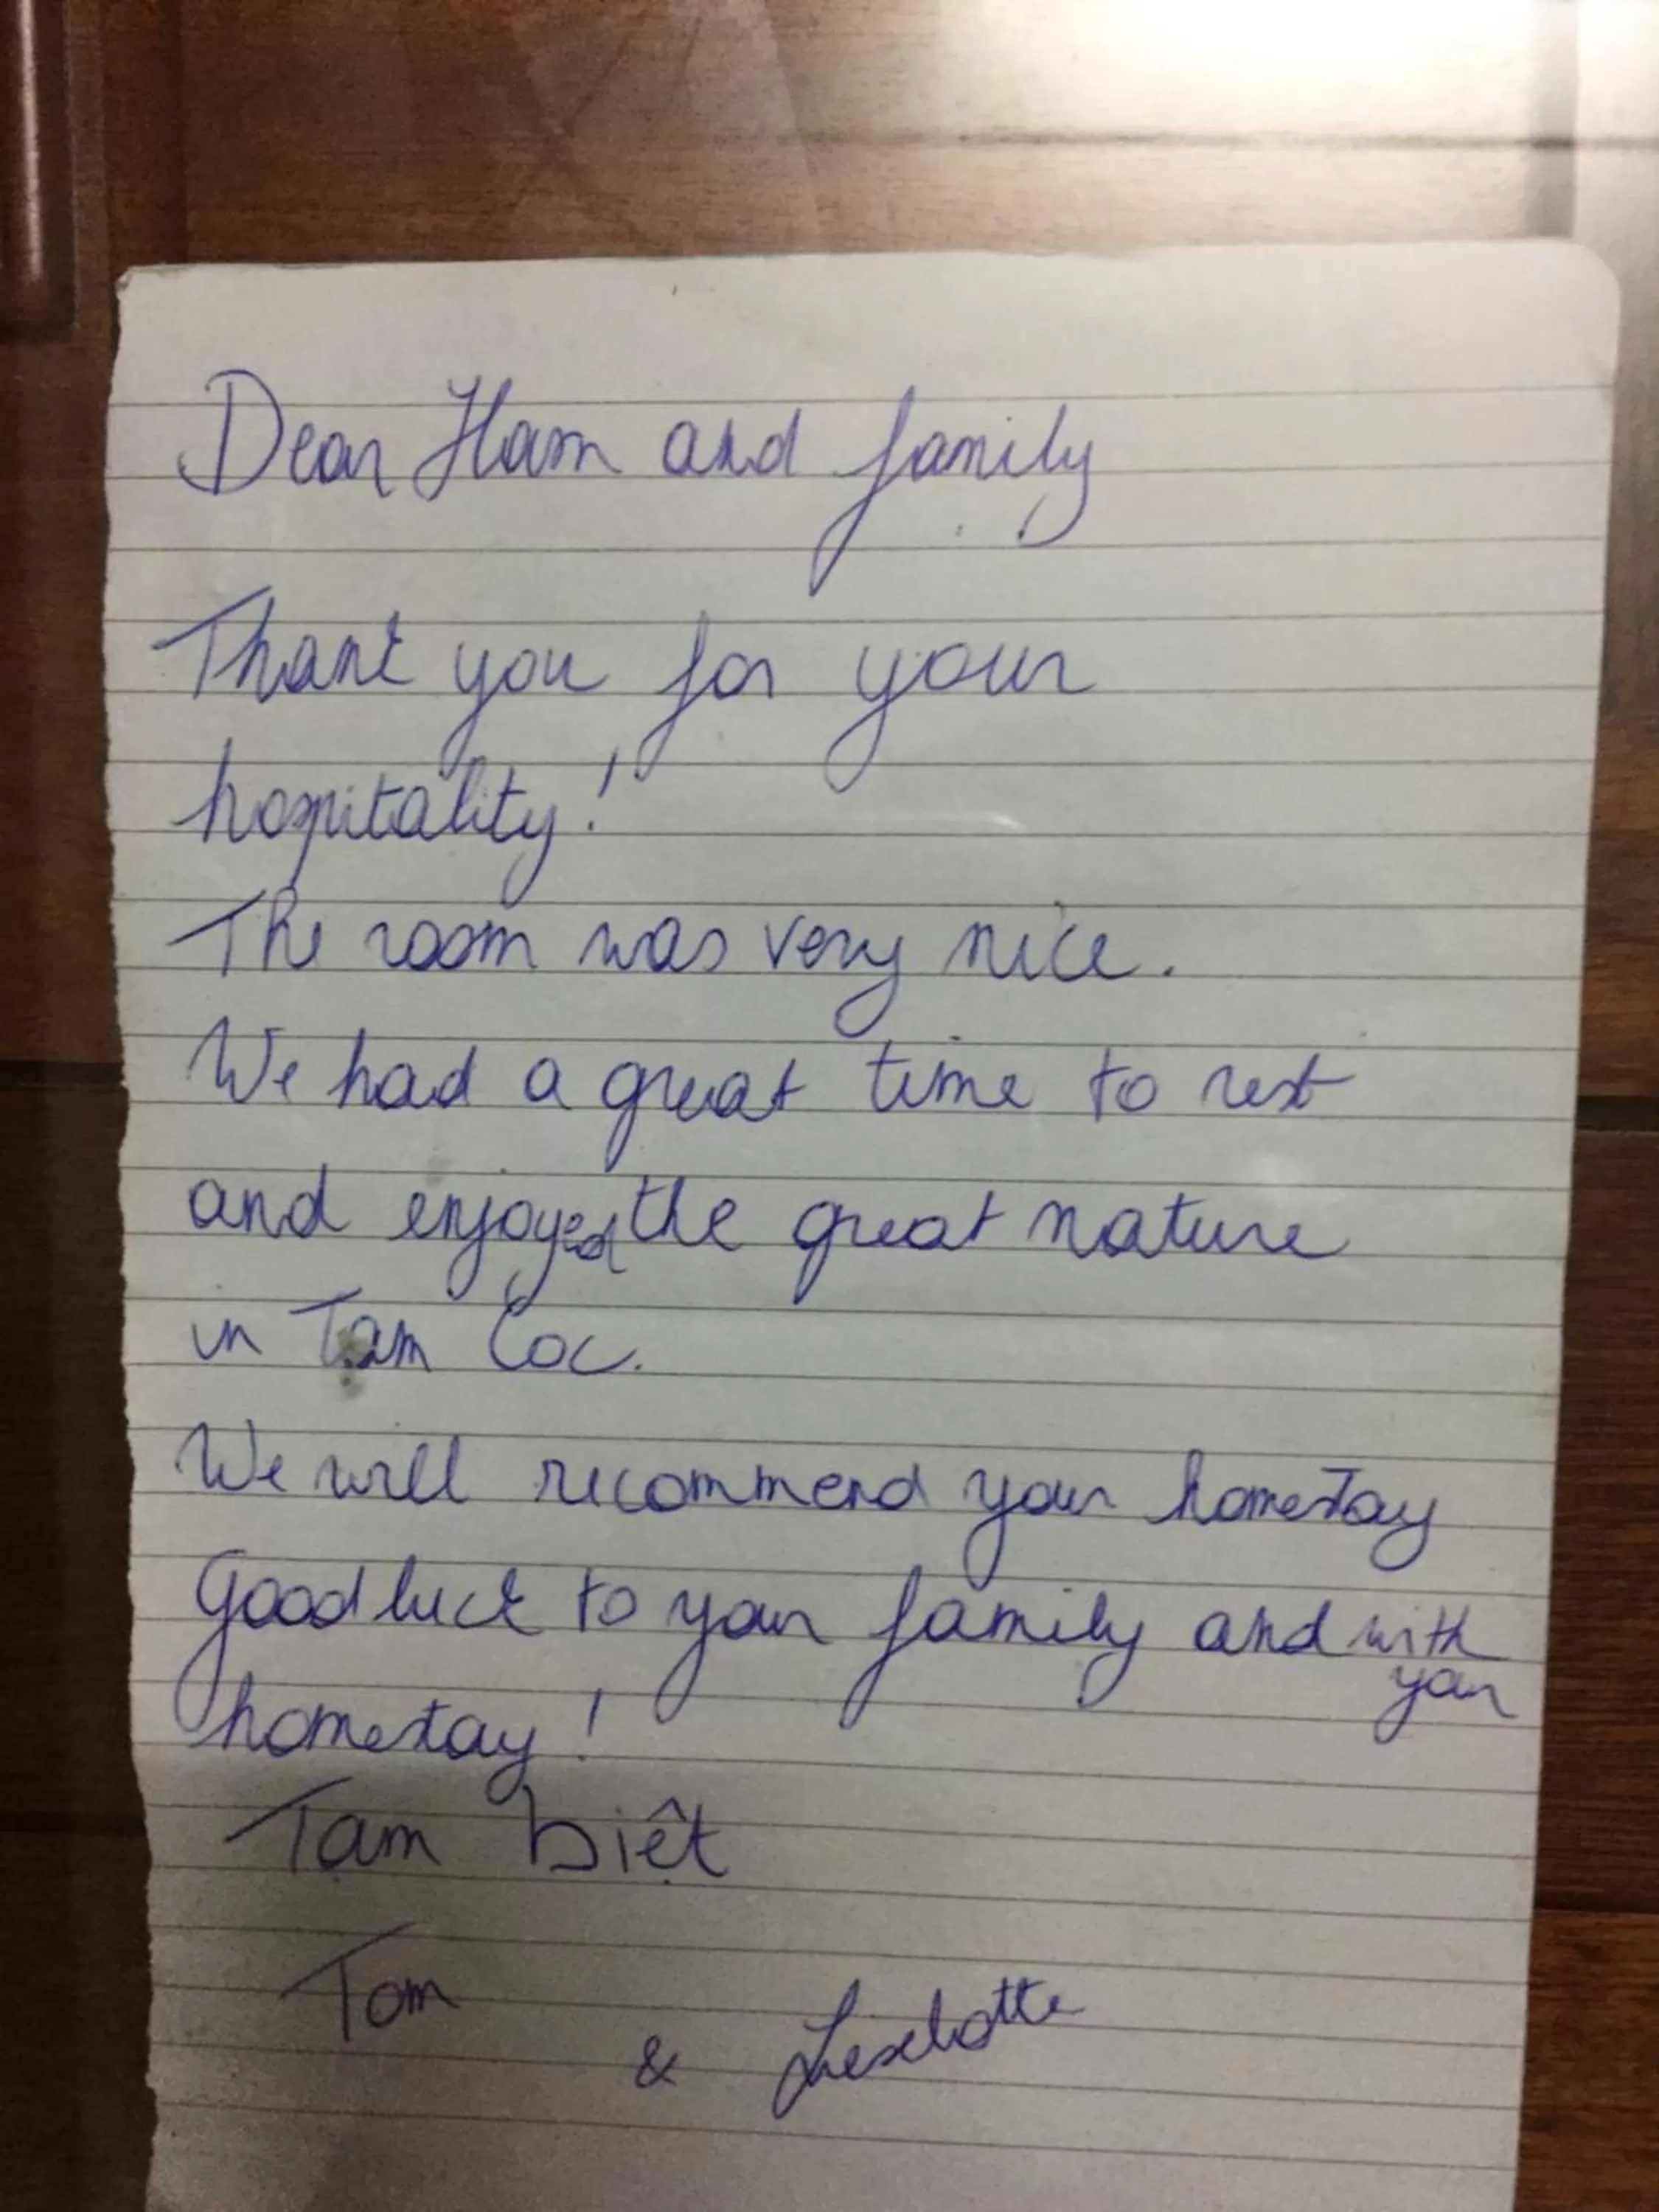 Dear Ham and family
Thank you for your
hospitality!
The room was very nice.
We had a great time to rest
and enjoyed the great nature
in Tam Coc.
We will recommend your homestay
Good luck to your family and with
your
homestay!
Tạm biệt
Tom
& Lieselotte